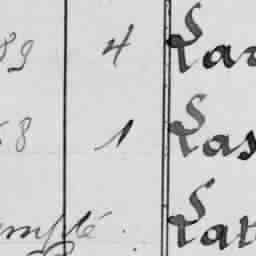 89 4 Lar
58 1 Las
emplé. Latt